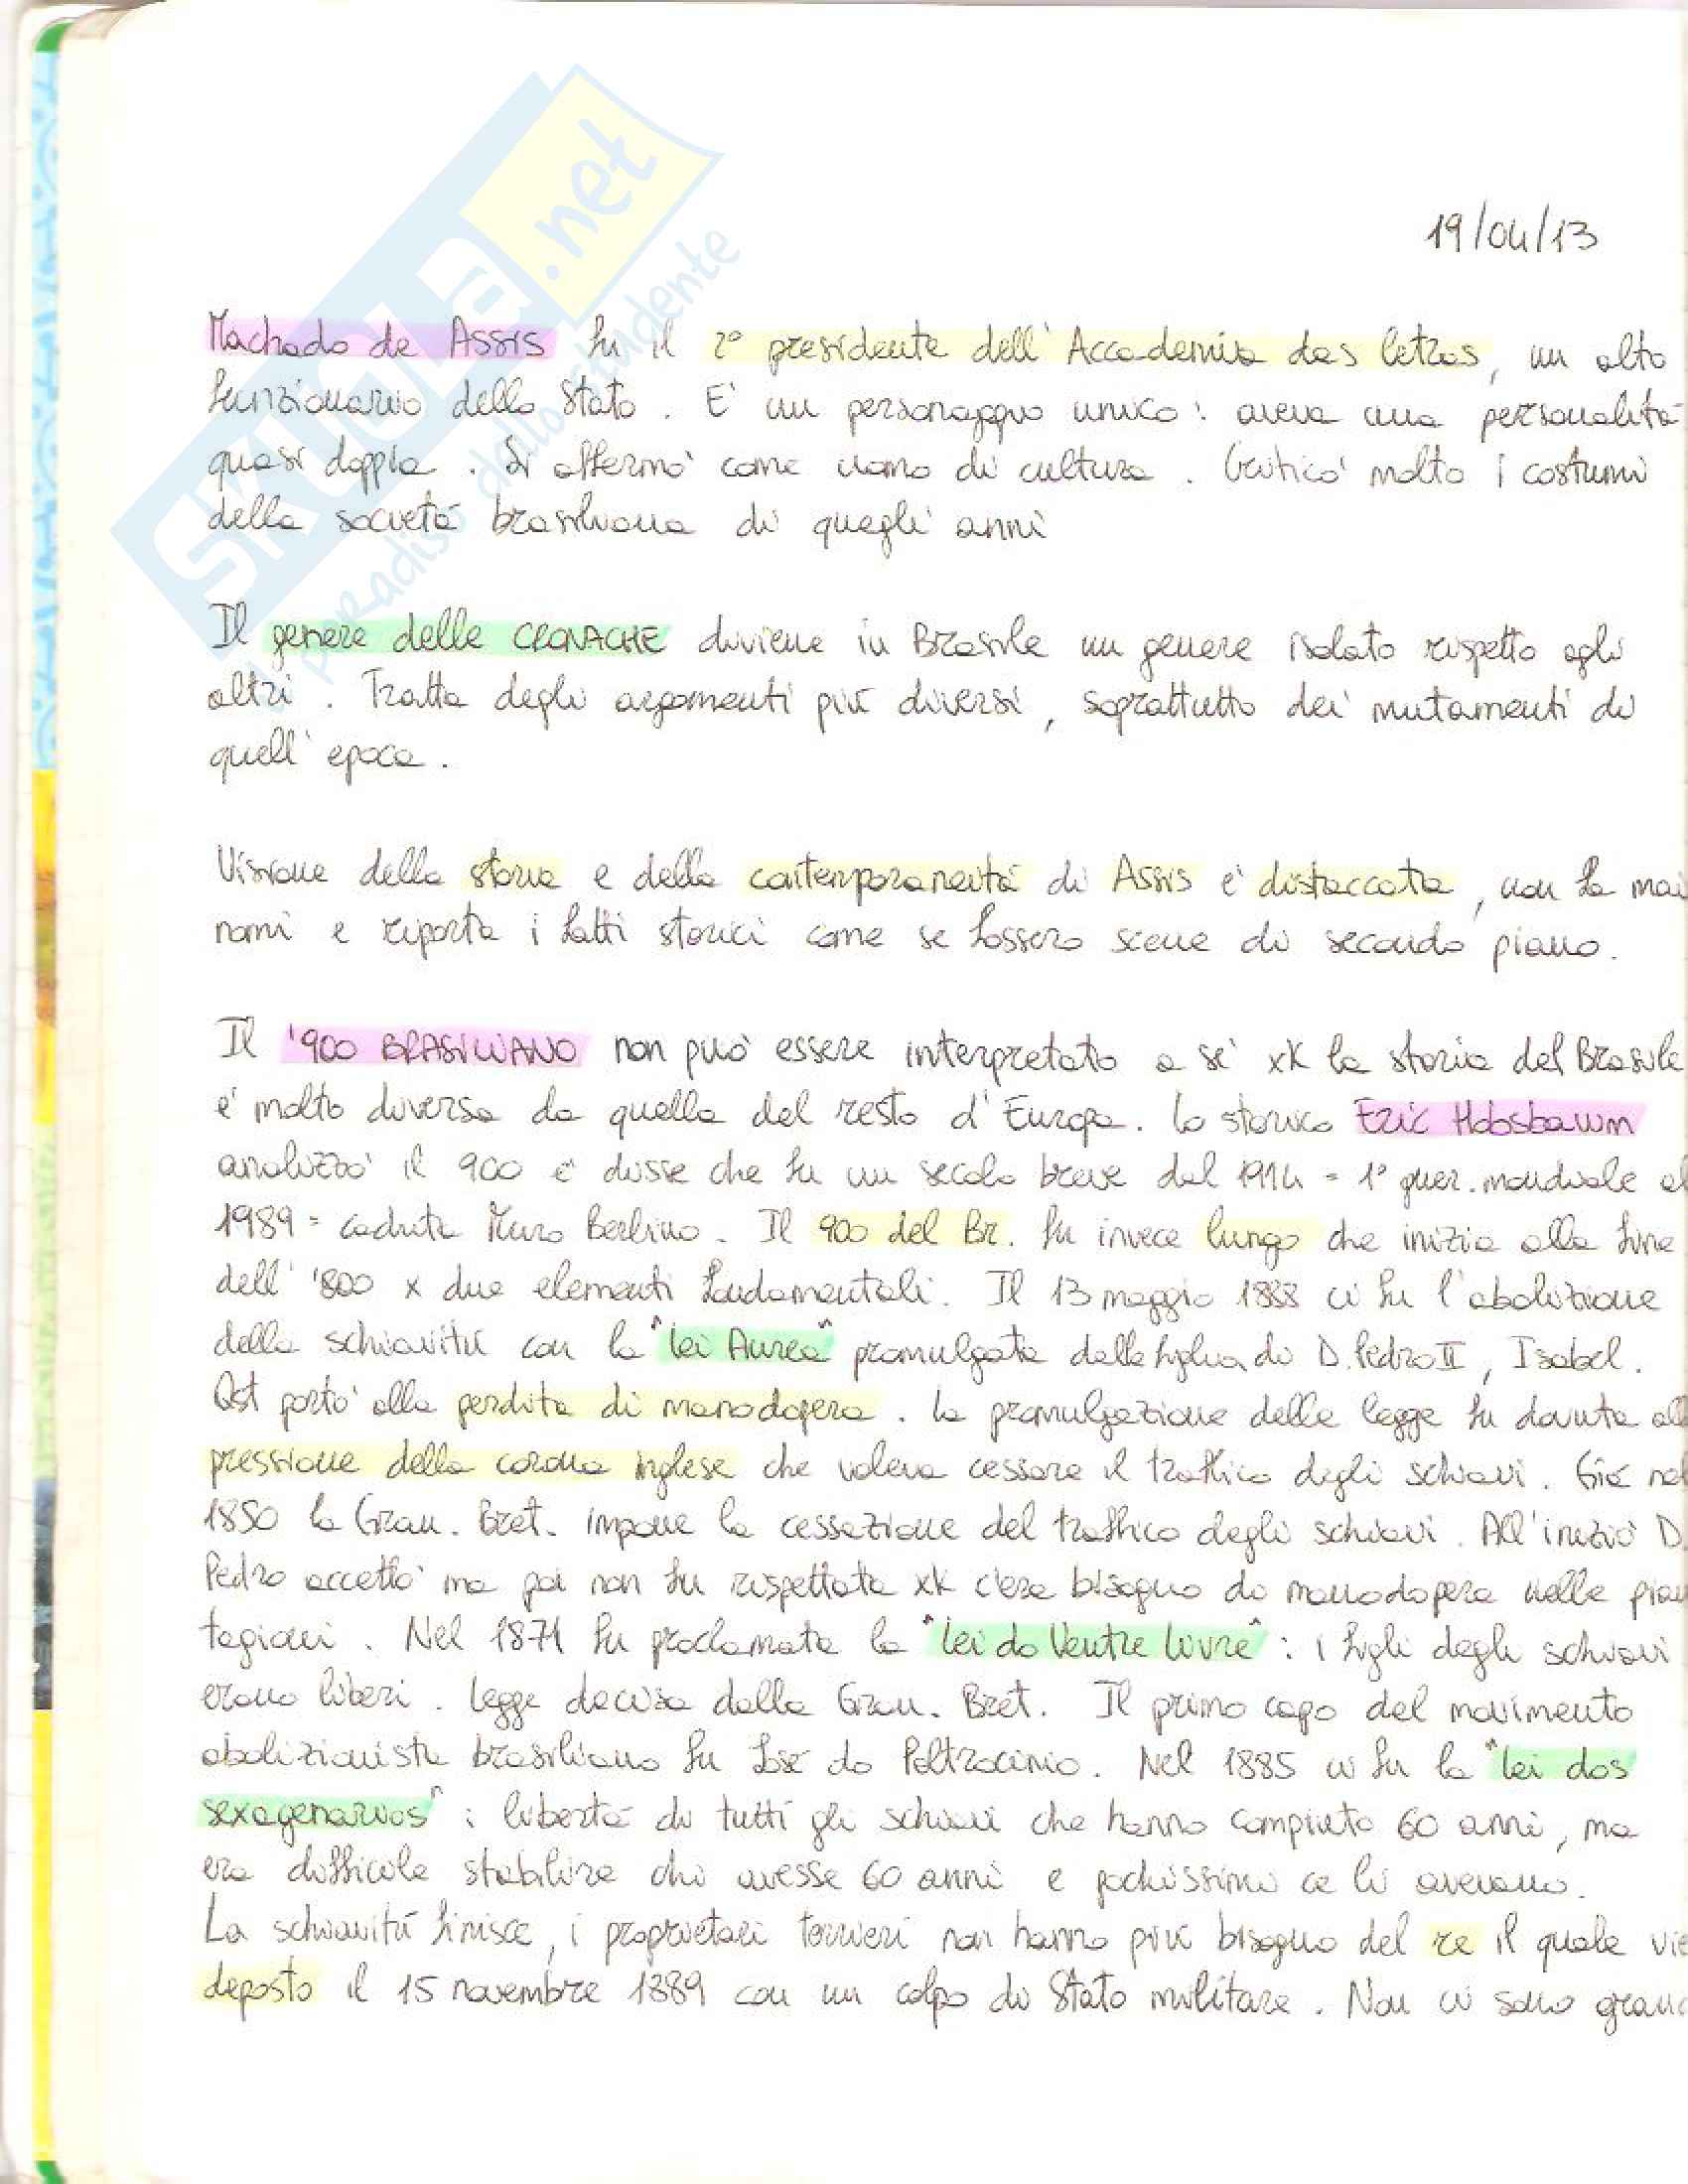 SKUOLA.net
il paradiso dello studente
19/04/13
Machado de Assis fu il 2° presidente dell'Accademia das letras, un alto
funzionario dello Stato. E' un personaggio unico: aveva una personalità
quasi doppia. Si affermò come uomo di cultura. Criticò molto i costumi
della società brasiliana di quegli anni
Il genere delle CRONACHE diviene in Brasile un genere isolato rispetto agli
altri. Tratta degli argomenti più diversi, soprattutto dei mutamenti di
quell'epoca.
Visione della storia e della contemporaneità di Assis è distaccata, non fa mai
nomi e riporta i fatti storici come se fossero scene di secondo piano.
Il '900 BRASILIANO non può essere interpretato a sé xK la storia del Brasile
è molto diversa da quella del resto d'Europa. Lo storico Eric Hobsbawm
analizzò il 900 e disse che fu un secolo breve dal 1914 = 1° guer. mondiale al
1989 = caduta Muro Berlino. Il 900 del Br. fu invece lungo che inizia alla fine
dell' '800 x due elementi fondamentali. Il 13 maggio 1888 ci fu l'abolizione
della schiavitù con la "lei Aurea" promulgata dalla figlia di D. Pedro II, Isabel.
Qst portò alla perdita di manodopera. La promulgazione delle legge fu dovuta all
pressione della corona inglese che voleva cessare il traffico degli schiavi. Già nel
1850 la Gran. Bret. impone la cessazione del traffico degli schiavi. All'inizio D.
Pedro accettò ma poi non fu rispettata xK c'era bisogno di manodopera nelle pian
tagioni. Nel 1871 fu proclamata la "Lei do Ventre Livre": i figli degli schiavi
erano liberi. Legge decisa dalla Gran. Bret. Il primo capo del movimento
abolizionista brasiliano fu José do Patrocinio. Nel 1885 ci fu la "lei dos
sexagenarios": libertà di tutti gli schiavi che hanno compiuto 60 anni, ma
era difficile stabilire chi avesse 60 anni e pochissimi ce li avevano.
La schiavitù finisce, i proprietari terrieri non hanno più bisogno del re il quale vie
deposto il 15 novembre 1889 con un colpo di Stato militare. Non ci sono grand